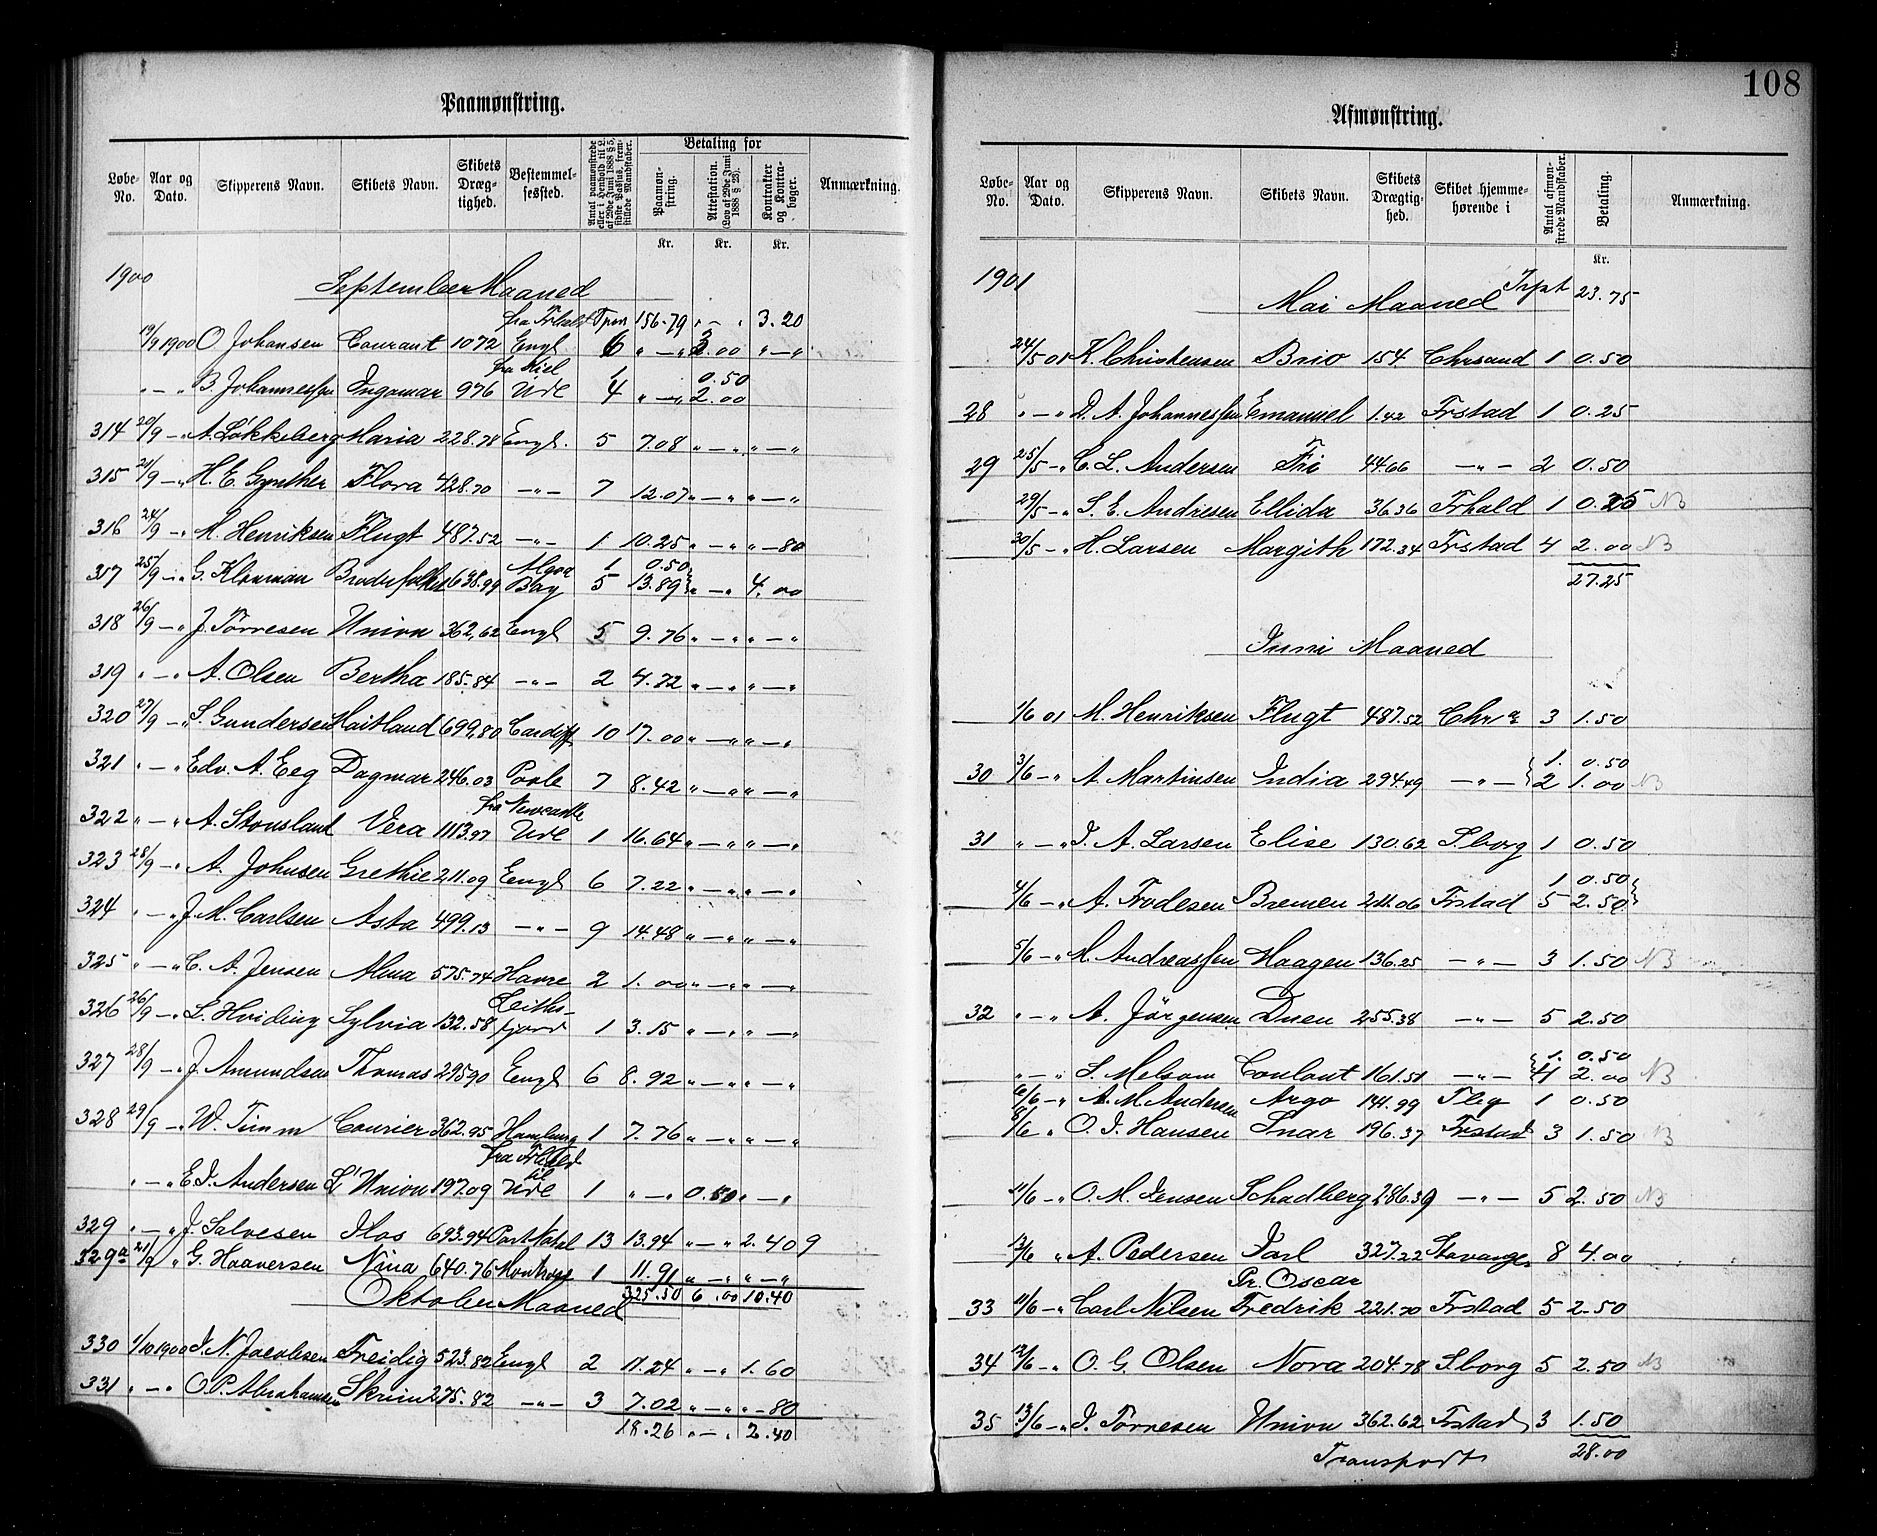 Paamønstring.
Løbe-No. Aar og Dato. Skipperens Navn. Skibets Navn. Skibets Dræg-tighed. Bestemmel-sessted. Antal paamønstrede eller i Henhold til L. af 29de Juni 1888 § 5, sidste Passus, frem-stillede Mandskaber. Betaling for Paamøn-string. Attestation. (Lov af 29de Juni 1888 § 23). Kontrakter og Kontra-bøger. Anmærkning.
Kr. Kr. Kr.
1900 September Maaned
fra Frhald Tpor 156.79 " — " 3.20
19/9 1900 O. Johansen Courant 1072 Engl 6 " — " 3.00 " — "
fra Kiel 1 0.50
" — " B. Johannessen Ingomar 976 Ude 4 " — " 2.00
314 20/9 — " A. Løkkeberg Maria 228.78 Engl. 5 7.08 " — " " — "
315 21/9 — " H. E. Gynther Flora 428.70 — " — 7 12.07 " — " " — "
316 24/9 — " M. Henriksen Flugt 487.52 — " — 1 10.25 " — " " — 80
Algoa 1 0.50
317 25/9 — " G. Klouman Broderfolket 638.99 Bay 5 13.89 " — " 4.00
318 26/9 — " J. Tørresen Union 362,62 Engl 5 9.76 " — " " — "
319 " — " A. Olsen Bertha 185.84 — " — 2 4.72 " — " " — "
320 27/9 — " S. Gundersen Maitland 699,80 Cardiff 10 17.00 " — " " — "
321 " — " Edv. A. Eeg Dagmar 246.03 Poole 7 8.42 " — " " — "
fra Newcastle
322 " — " A. Stousland Vera 1113.97 Ude 1 16.64 " — " " — "
323 28/9 — " A. Johnsen Grethie 211.09 Engl 6 7.22 " — " " — "
324 " — " J. M. Carlsen Asta 499.13 — " — 9 14.48 " — " " — "
325 " — " C. A. Jensen Alma 575.74 Havre 2 1.00 " — " " — "
Leiths-
326 26/9 — " L. Hviding Sylvia 132.58 fjord 1 3.15 " — " " — "
327 28/9 — " J. Amundsen Thomas 295.90 Engl 6 8.92 " — " " — "
328 29/9 — " W. Timm Courier 362.95 Hamburg 1 7.76 " — " " — "
fra Frhald til
" — " E. I. Andersen L'Union 197.09 Ude 1 " — " 0.50 " — "
329 " — " J. Salvesen Ilos 693.94 Port Natal 13 13.94 " — " 2.40 9
329a 21/9 " G. Haaversen Nina 640.76 Montrose 1 11.91 " — " " — "
325.50 6.00 10.40
Oktober Maaned
330 1/10 1900 I. N. Jacobsen Freidig 523.82 Engl 2 11.24 " — " 1.60
331 " — " O. P. Abrahamsen Skrim 275.82 — " — 3 7.02 " — " " — 80
18.26 " — " 2.40
108
Afmønstring.
Løbe-No. Aar og Dato. Skipperens Navn. Skibets Navn. Skibets Drægtig-hed. Skibet hjemme-hørende i Antal afmøn-strede Mandskaber. Betaling. Anmærkning.
Kr.
1901 Mai Maaned Trpt 23.75
24/5 01 K. Christensen Brio 154. Chrsand 1 0.50
28 " — " D. A. Johannessen Emanuel 1.42 Frstad 1 0.25
29 25/5 — " C. L. Andersen Fri 44.66 — " — 2 0.50
29/5 — " S. E. Andresen Ellida 36.36 Frhald 1 0.25 NB
30/5 — " H. Larsen Margith 172.34 Frstad 4 2.00 NB
27.25
Juni Maaned
1/6 01 M. Henriksen Flugt 487.52 Chra 3 1.50
1. 0.50
30 3/6 — " A. Martinsen India 294.49 — " — 2 1.00 NB
31 " — " I. A. Larsen Elise 130.62 S.borg 1 0.50
1 0.50
4/6 — " A. Frodesen Bremen 211.06 Frstad 5 2.50
5/6 — " M. Andreassen Haagen 136.25 — " — 3 1.50 NB
32 " — " A. Jörgensen Duen 255.38 — " — 5 2.50
1. 0.50
" — " S. Melsom Coulant 161.51 — " — 4 2.00 NB
6/6 — " A. M. Andersen Argo 141.99 1 0.50
8/6 " O. I. Hansen Snar 196.37 Frstad 3 1.50 NB
11/6 — " O. M. Jensen Schadberg 286.39 — " — 5 2.50 NB
12/6 " A. Pedersen Jarl 327.22 Stavanger 8 4.00
Pr. Oscar
33 11/6 — " Carl Nilsen Fredrik 221.70 Frstad 5 2.50
34 12/6 — " O. G. Olsen Nora 204.78 S.borg 5 2.50 NB
35 13/6 — " J. Tørresen Union 362.62 Frstad 3 1.50
Transport 28.00